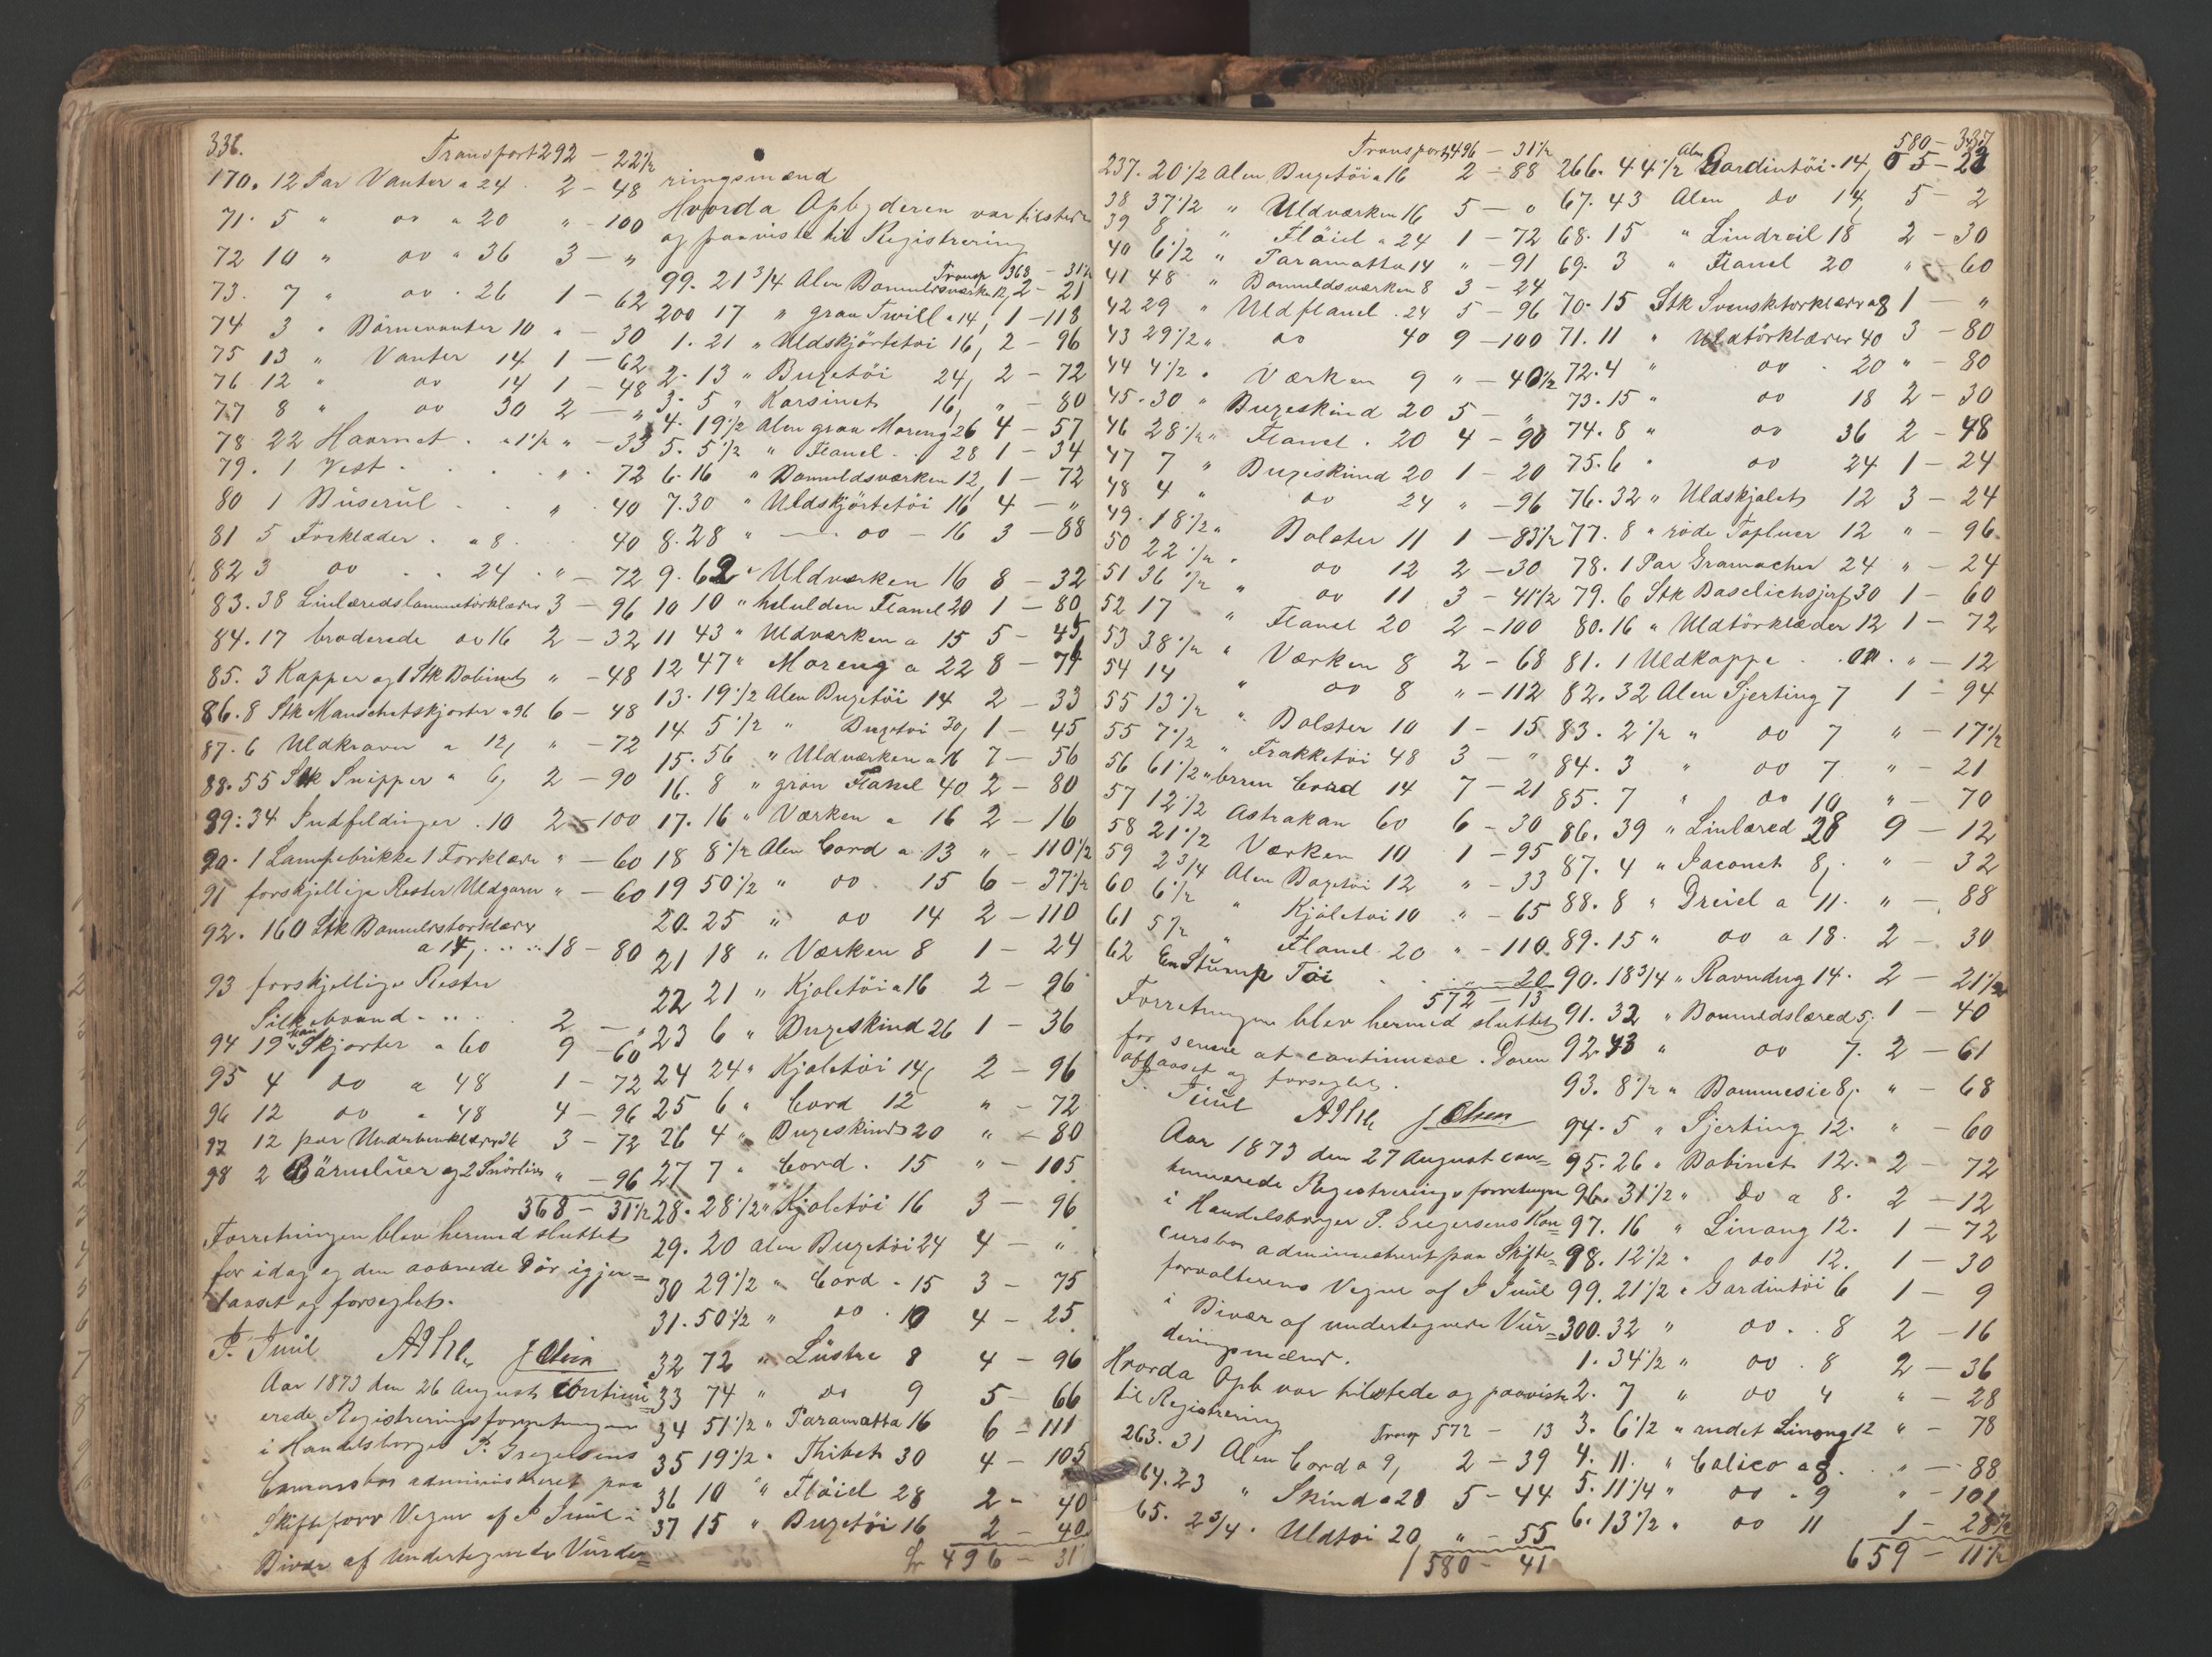 338.
Transport 292 - 22 1/2
170. 12 Par Vanter a 24. 2 - 48
71. 5 " do a 20 " - 100
72 10 " do " 36 3 - "
73. 7 " do . 26 1 - 62
74 3 " Börnevanter 10 " - 30
75 13 " Vanter 14 1 - 62
76 12 " do 14 1 - 48
77 8 " do 30 2 - "
78 22 Haarnet . a 1 1/2 " - 33
79. 1 Vest . . . . " . 72
80 1 Buserul . . " . 40
81 5 Forklæder . a 8 . 40
82 3 do . . 24 . " - 72
83. 38 Linlærredslommetörklæder 3 - 96
84. 17 broderede do 16 2 - 32
85. 3 Kapper og 1 Stk Bobinet " - 48
86. 8 Stk Manschetskjorter a 96 6 - 48
87. 6 Uldkraver a 12, " - 72
88. 55 Stk Snipper a 6, 2 - 90
89: 34 Indfeldinger . 10 2 - 100
90. 1 Lampebrikke 1 Forklæde " - 60
91 forskjellige Rester Uldgarn " - 60
92. 160 Stk Bomuldstörklæder
a 14, .. .. .. 18 - 80
93 forskjellige Rester
Silkebaand - .. . 2 - "
94 19 Skjorter a 60 9 - 60
95 4 do a 48 1 - 72
96 12 do " 48 4 - 96
97 12 par Underbenklæder 36 3 - 72
98 2 Börneluer og 2 Snörliv " - 96
368 - 31 1/2
Forretningen blev hermed sluttet
for idag og den aabnede Dör igjen=
laaset og forseglet.
P. Juul J Olsen
Aar 1873 den 26 August Continu=
erede Registreringsforretningen
i Handelsborger P. Gregersens
Concursbo administreret paa
Skifteforv Vegne af P Juul i
Bivær af Undertegnede Vurde=
ringsmænd
Hvorda Opbyderen var tilstede
og paaviste til Registrering
Transp 368 - 31 1/2
99. 21 3/4 Alen Bomuldsværken 12, 2 - 21
200 17 " graa Twill a 14, 1 - 118
1. 21 " Uldskjörtetöi 16, 2 - 96
2. 13 " Buxetöi 24, 2 - 72
3. 5 " Karsinet 16, " - 80
4. 19 1/2 Alen graa Moreng 26 4 - 57
5. 5 1/2 " Flanel . . 28 1 - 34
6. 16 " Bomuldsværken 12, 1 - 72
7. 30 " Uldskjörtetöi 16 4 - "
8. 28 " - do - 16 3 - 88
9. 62 " Uldværken 16 8 - 32
10 10 " helulden Flanel 20 1 - 80
11 43 " Uldværken a 15 5 - 45
12 47 " Moreng a 22 8 - 74
13. 19 1/2 Alen Buxetöi 14 2 - 33
14 5 1/2 " Buxetöi 30, 1 - 45
15. 56 " Uldværken a 16 7 - 56
16. 8 " grön Flanel 40 2 - 80
17. 16 " Værken a 16 2 - 16
18 8 1/2 Alen Cord a 13 " - 110 1/2
19 50 1/2 " do . 15 6 - 37 1/2
20. 25 " do 14 2 - 110
21 18 " Værken 8 1 - 24
22 21 " Kjoletöi a 16 2 - 96
23 6 " Buxeskind 26 1 - 36
24 24 " Kjoletöi 14 2 - 96
25 6 " Cord 12 " - 72
26 4 " Buxeskind 20 " - 80
27 7 " Cord . 15 " - 105
28. 28 1/2 " Kjoletöi 16 3 - 96
29. 20 alen Buxetöi 24 4 - "
30 29 1/2 " Cord - 15 3 - 75
31. 50 1/2 " do . 10 4 - 25
32 72 " Lüstre 8 4 - 96
33 74 " do 9 5 - 66
34 51 1/2 " Paramatta 16 6 - 111
35 19 1/2 " Thibet 30 4 - 105
36 10 " Flöiel 28 2 - 40
37 15 " Buxetöi 16 2 - 40
496 - 31
Transport 496 - 31 1/2
237. 20 1/2 Alen Buxetöi a 16 2 - 88
38 37 1/2 " Uldværken 16 5 - "
39 8 " Flöiel a 24 1 - 72
40 6 1/2 " Paramatta 14 " - 91
41 48 " Bomuldsværken 8 3 - 24
42 29 " Uldflanel . 24 5 - 96
43 29 1/2 " do 40 9 - 100
44 4 1/2 " Værken 9 " - 40 1/2
45. 30 " Buxeskind 20 5 - "
46 28 1/2 " Flanel . 20 4 - 90
47 7 " Buxeskind 20 1 - 20
48 4 " do 24 " - 96
49. 18 1/2 " Bolster 11 1 - 83 1/2
50 22 1/2 " do 12 2 - 30
51 36 1/2 " do 11 3 - 41 1/2
52 17 " Flanel 20 2 - 100
53 38 1/2 " Værken 8 2 - 68
54 14 " do 8 " - 112
55 13 1/2 " Bolster 10 1 - 15
55 7 1/2 " Frakketöi 48 3 - "
56 61 1/2 " brun Cord 14 7 - 21
57 12 1/2 Astrakan 60 6 - 30
58 21 1/2 Værken 10 1 - 95
59 2 3/4 Alen Buxetöi 12 " - 33
60 6 1/2 " Kjoletöi 10 " - 65
61 5 1/2 " Flanel . 20 " - 110
62 En Stump Töi . . " - 20
572 - 13
Forretningen blev hermed sluttet
for senere at continueres . Dören
aflaaset og forseglet.
P. Juul J Olsen
Aar 1873 den 27 August con=
tinuerede Registreringsforretningen
i Handelsborger P. Gregersens Kon=
cursbo administreret paa Skifte=
forvalterens Vegne af P Juul
i Bivær af undertegnede Vur=
deringsmænd.
Hvorda Opb var tilstede og paaviste
til Registrering
Transp 572 - 13
263. 31 Alen Cord a 9, 2 - 39
64. 23 " Skind a 28 5 - 44
65. 2 3/4 . Uldtöi 20, " - 55
580 - 41
580 - 337
266. 44 1/2 Alen Gardintöi . 14, 5 - 21
67. 43 Alen do 14, 5 - 2
68. 15 " Lindreil 18 2 - 30
69. 3 " Flanel 20 " - 60
70. 15 Stk 8 1 - "
71. 11 " Uldtörklæder 40 3 - 80
72. 4 " do . 20 " - 80
73. 15 " do 18 2 - 30
74. 8 " do 36 2 - 48
75. 6 " do 24 1 - 24
76. 32 " Uldskjalet 12 3 - 24
77. 8 " röde Topluer 12 " - 96.
78. 1 Par Gramacher 24 " - 24
79. 6 Stk 30 1 - 60
80. 16 " Uldtörklæder 12 1 - 72
81. 1 Uldkappe . . " - 12
82. 32 Alen Sjerting 7 1 - 94
83. 2 1/2 " do 7 " - 17 1/2
84. 3 " do 7 " - 21
85. 7 " do 10 " - 70
86. 39 " Linlæred 28 9 - 12
87. 4 " Jaconet 8, " - 32
88. 8 " Dreiel a 11. " - 88
89. 15 " do a 18. 2 - 30
90. 18 3/4 " Ravndug 14. 2 - 21 1/2
91. 32 " Bomuldslæred 5, 1 - 40
92. 43 " do 7. 2 - 61
93. 8 1/2 " Bommesie 8, " - 68
94. 5 " Sjerting 12. " - 60
95. 26 " Bobinet 12. 2 - 72
96. 31 1/2 " Do a 8. 2 - 12
97. 16 " Linong 12. 1 - 72
98. 12 1/2 " do 12. 1 - 30
99. 21 1/2 " Gardintöi 6 1 - 9
300. 32 " do . . 8 2 - 16
1. 34 1/2 " do . 8 2 - 36
2. 7 " do 4 " - 28
3. 6 1/2 " andet Linong 12 " - 78
4. 11. " Calico a 8. . " - 88
5. 11 1/4 " do . 9 " - 101
6. 13 1/2 " do 11 1 - 28 1/2
659 - 11 1/2